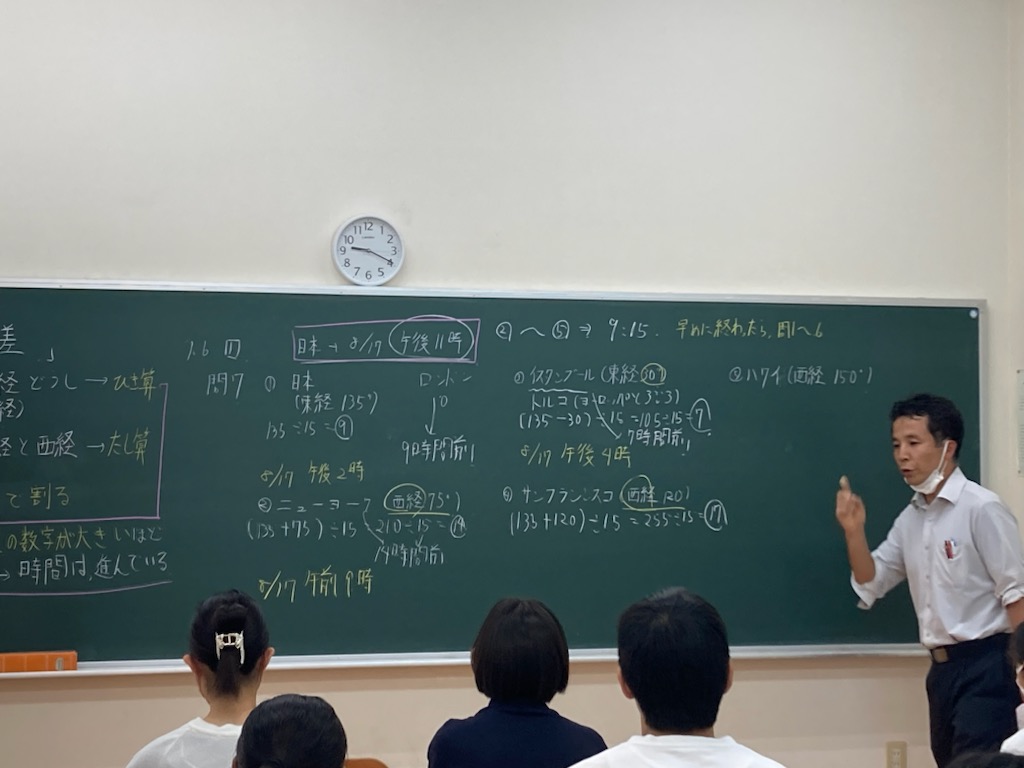 差」
経どうし → ひき算
経)
経と西経 → たし算
で割る
の数字が大きいほど
→ 時間は、進んでいる
P.6 回
問7
日本 → 8/17 午後11時
① 日本
(東経 135°)
135÷15=⑨
ロンドン
0
9時間前!
8/17 午後2時
② ニューヨーク (西経 75°)
(135+75)÷15 = 210÷15=⑭
14時間前
8/17 午前9時
② 〜 ⑤ ⇒ 9:15. 早めに終わったら、問1〜6
イスタンブール (東経 30°)
トルコ (ヨーロッパとアジア)
(135-30)÷15=105÷15=⑦
7時間前!
8/17 午後4時
④ サンフランシスコ (西経 120)
(135+120)÷15=255÷15=⑰
ハワイ (西経 150°)
12
1
2
3
4
5
6
7
8
9
10
11